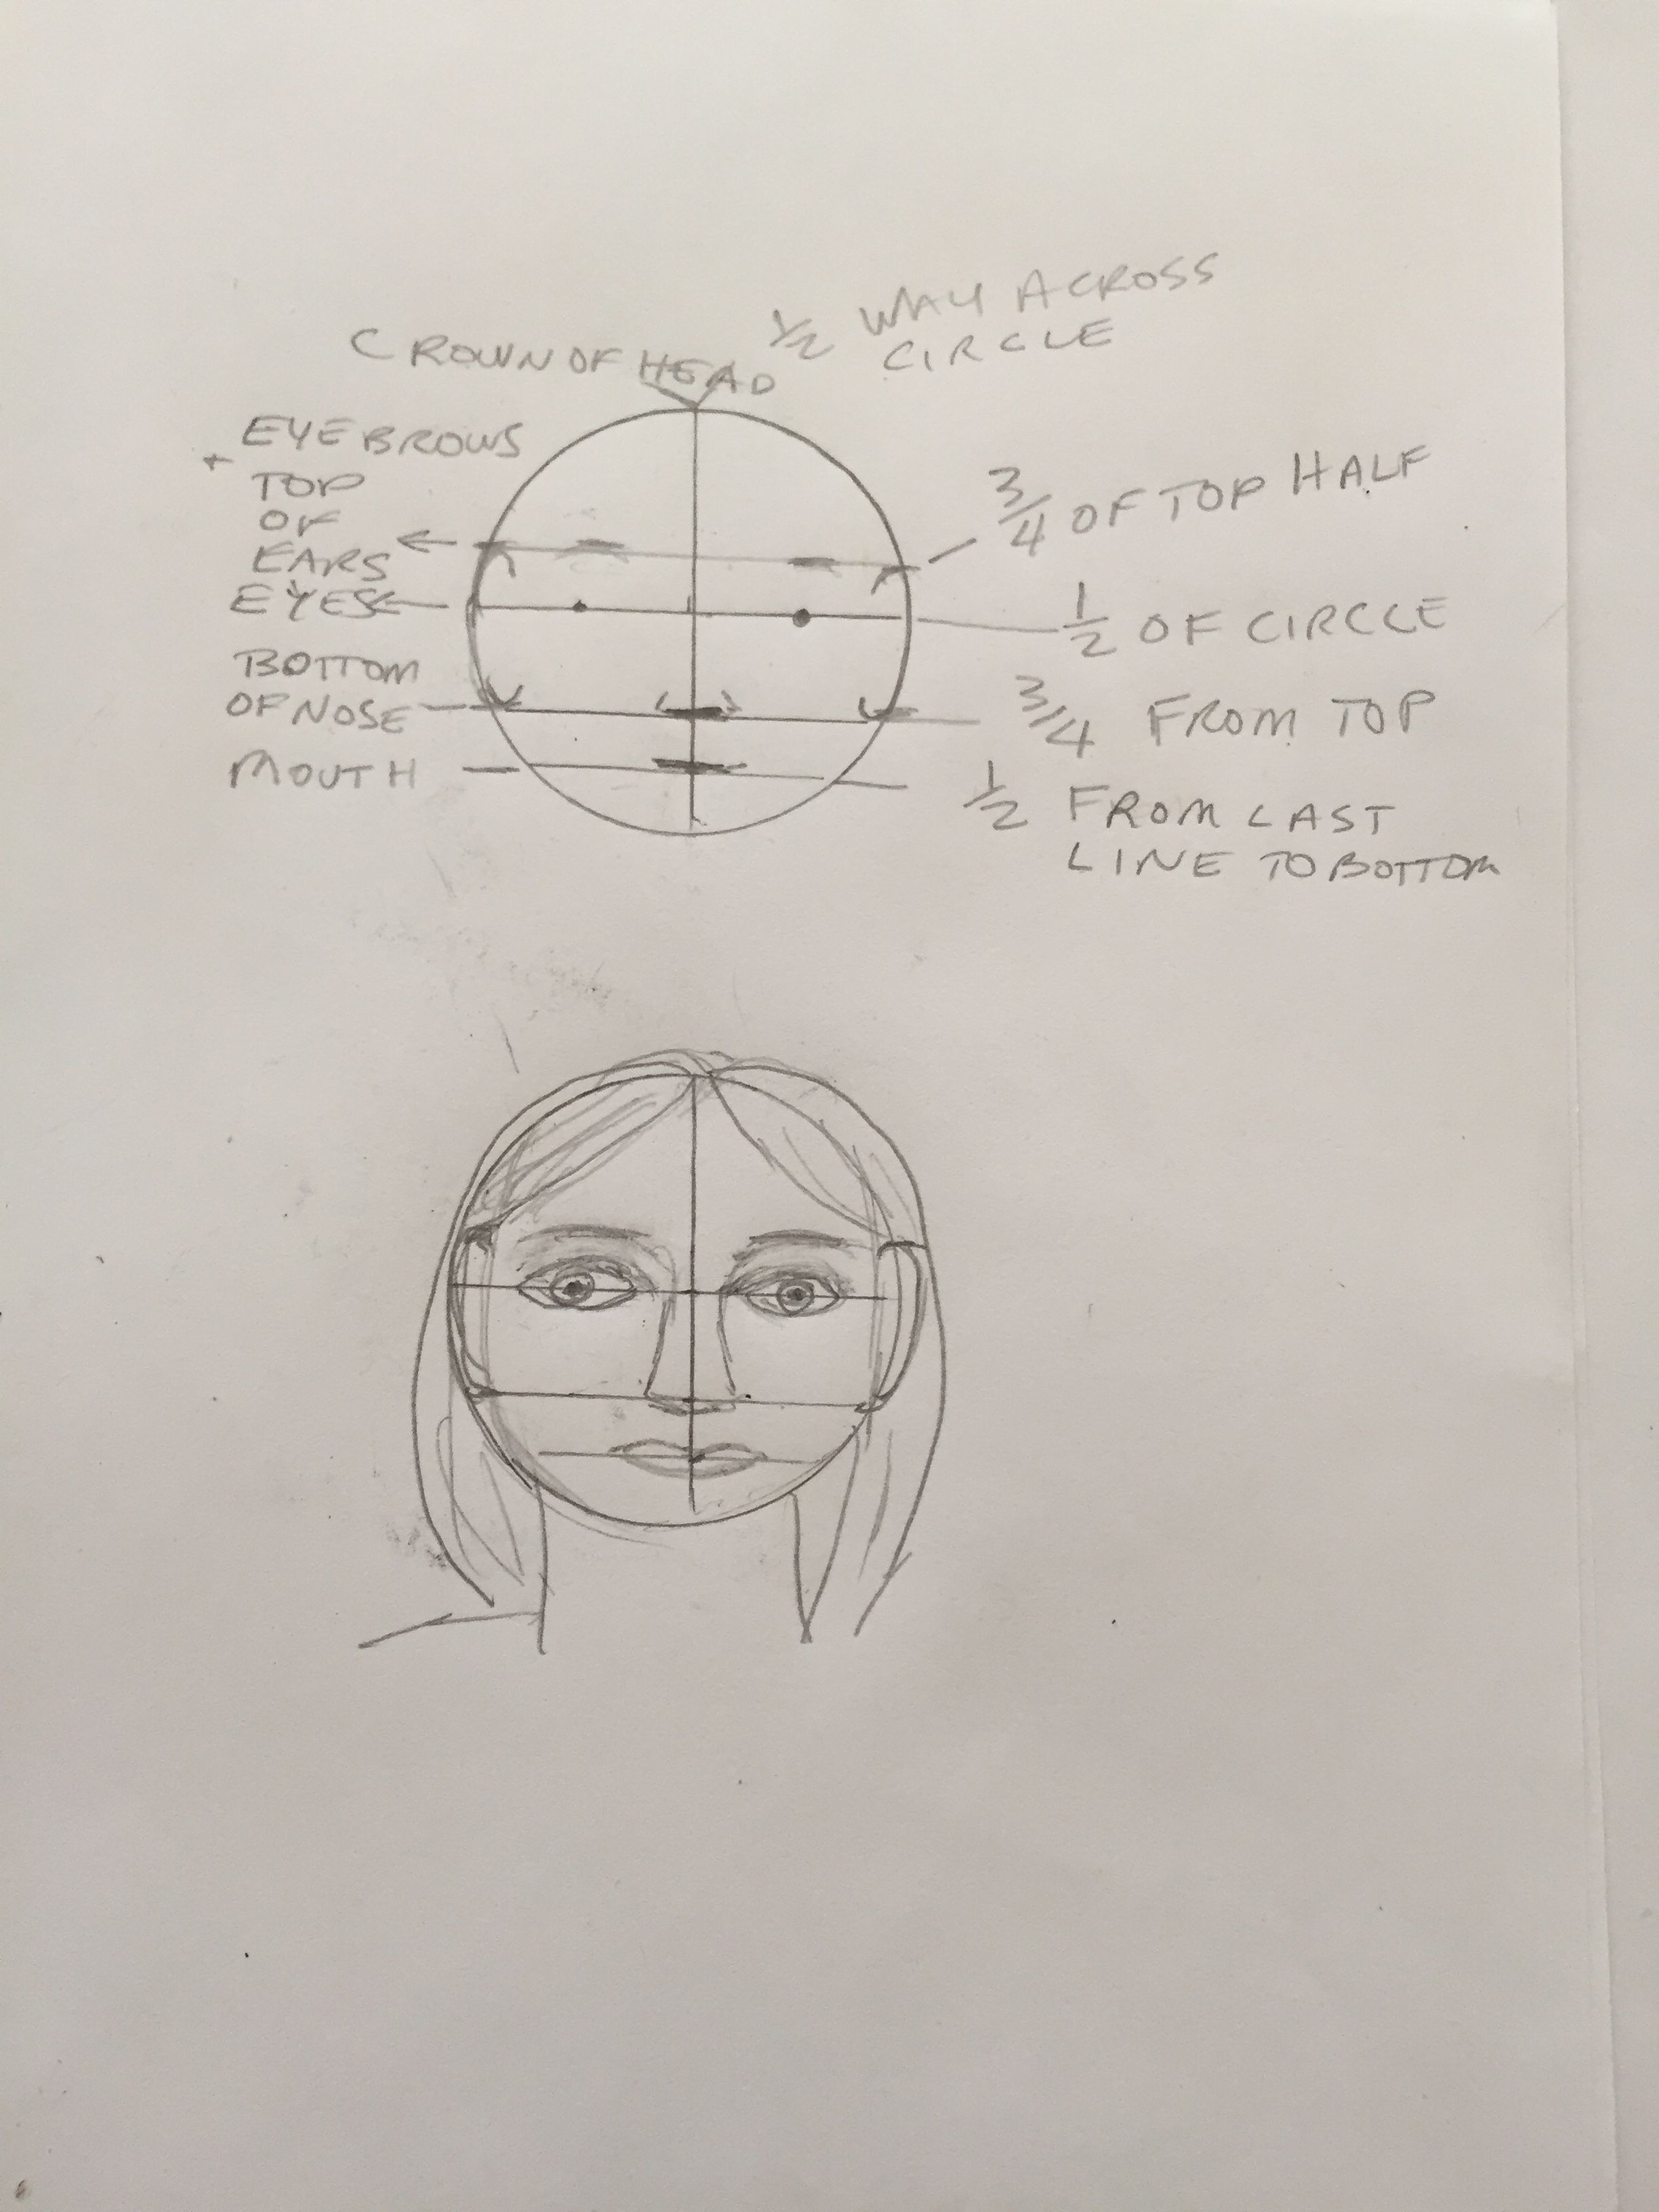 CROWN OF HEAD
1/2 WAY ACROSS
CIRCLE
EYEBROWS
+ TOP
OF
EARS
EYES
BOTTOM
OF NOSE
MOUTH
3/4 OF TOP HALF
1/2 OF CIRCLE
3/4 FROM TOP
1/2 FROM LAST
LINE TO BOTTOM